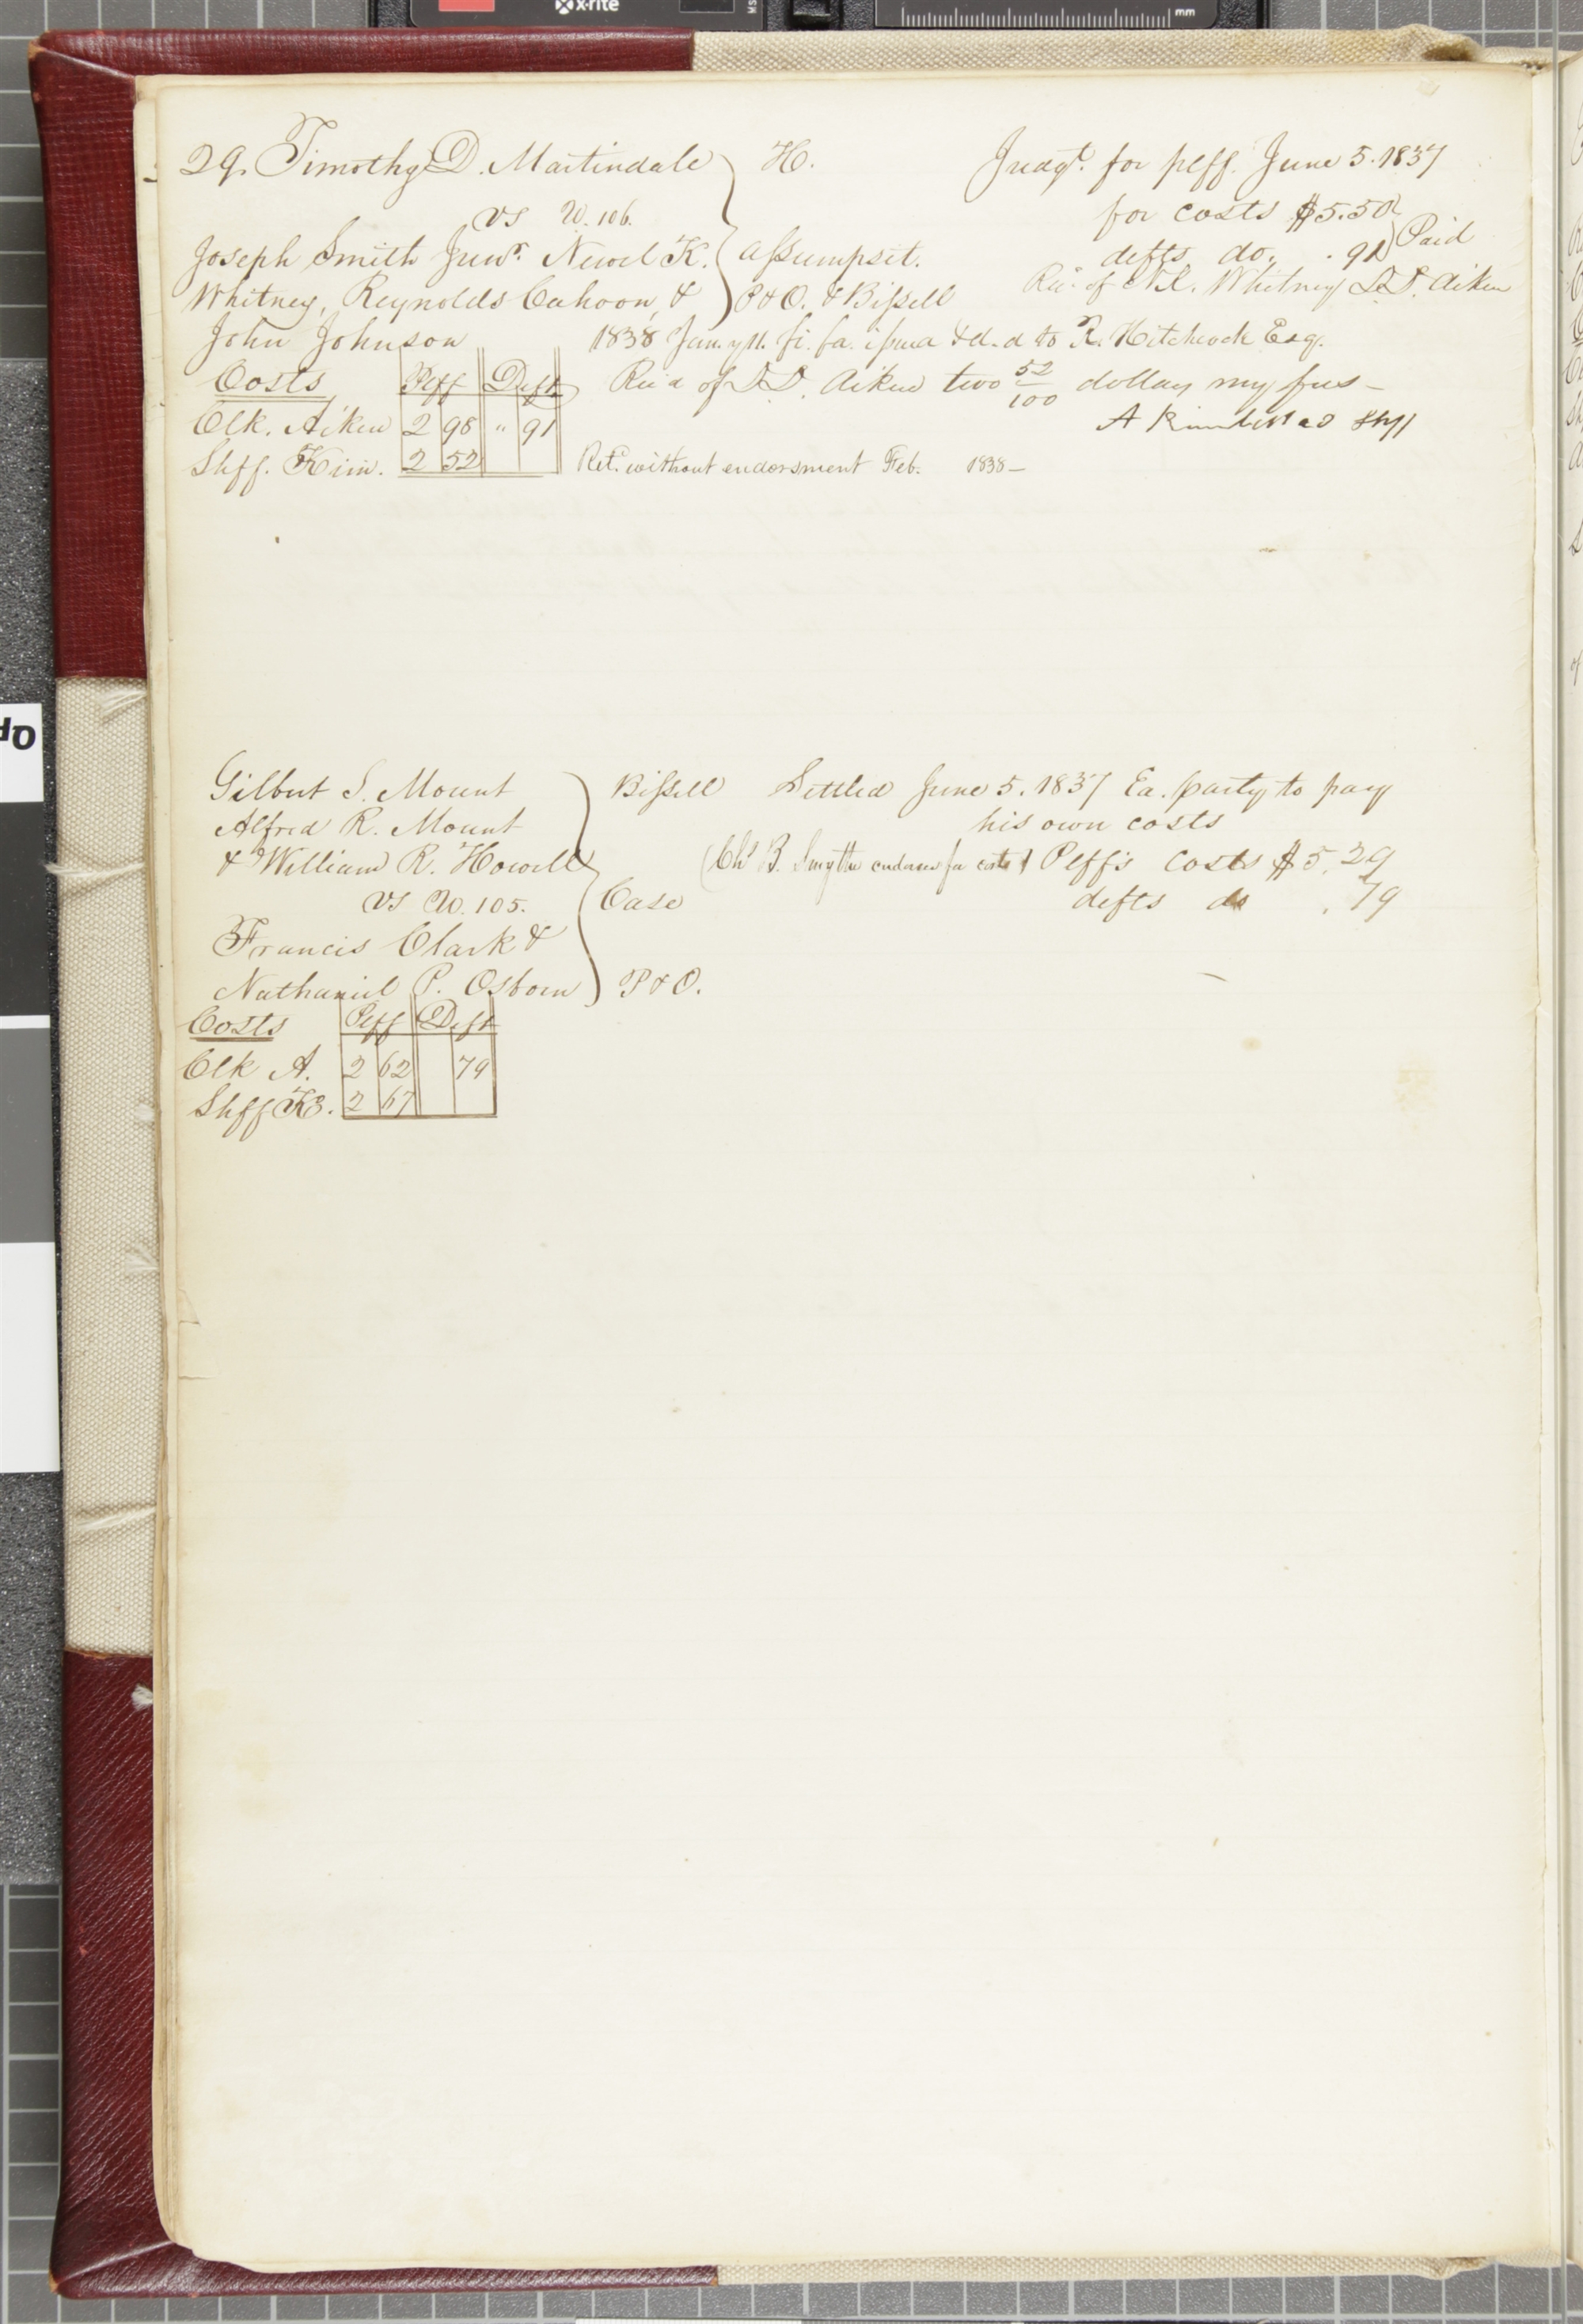 x-rite
mm
29. Timothy D. Martindale H. Judgt. for plff. June 5. 1837
vs W. 106. for costs $5.50
Joseph Smith Junr. Newel K. assumpsit. defts do. .91 Paid
Whitney, Reynolds Cahoon, & P & O. & Bissell Rec. of N. K. Whitney D. D. Aiken
John Johnson 1838 Jan.y 11. fi. fa. issued & d.d to R. Hitchcock Esq.
Costs Plff Deft Rec'd of D. D. Aiken two 52/100 dollars my fees –
Clk. Aiken 2 98 " 91 A Kimball Shff
Shff. Kim. 2 52 Ret. without endorsment Feb. 1838 –
Gilbert S. Mount Bissell Settled June 5. 1837 Ea. party to pay
Alfred R. Mount his own costs
& William R. Howell (Chs B. Smythe endorser for costs) Plff's costs $5.29
vs W. 105. Case defts do .79
Francis Clark &
Nathaniel P. Osborn P & O.
Costs Plff Deft
Clk A. 2 62 79
Shff K. 2 67